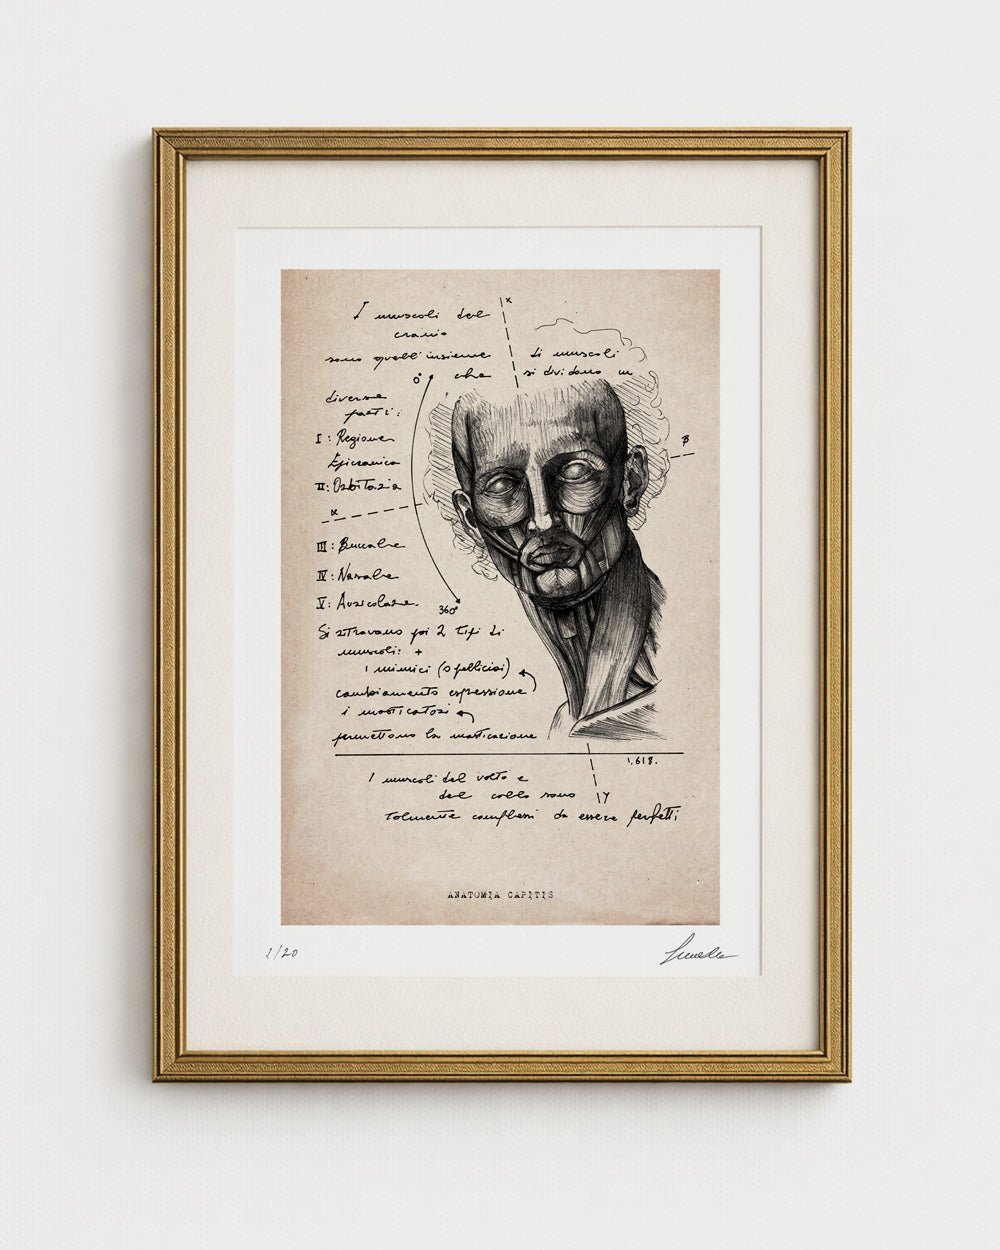 I muscoli del
cranio
sono quell'insieme di muscoli
che si dividono in
x
0°
diverse
parti:
I: Regione
Epicranica
B
II: Orbitaria
α
III: Buccale
IV: Nasale
V: Auricolare.
360°
Si ritrovano poi 2 tipi di
muscoli: +
i mimici (o pellicciai)
cambiamento espressione
i masticatori
permettono la masticazione
1,618.
I muscoli del volto e
del collo sono
Y
talmente complessi da essere perfetti
ANATOMIA CAPITIS
1/20